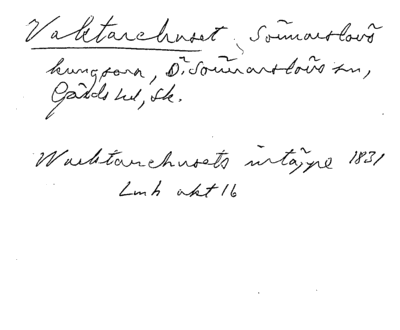 Vaktarehuset, Sönnarslövs
Ö. Sönnarslövs sn,
Gärds hd, Sk.
Wacktarehusets intäppe 1831
Lmh akt 16